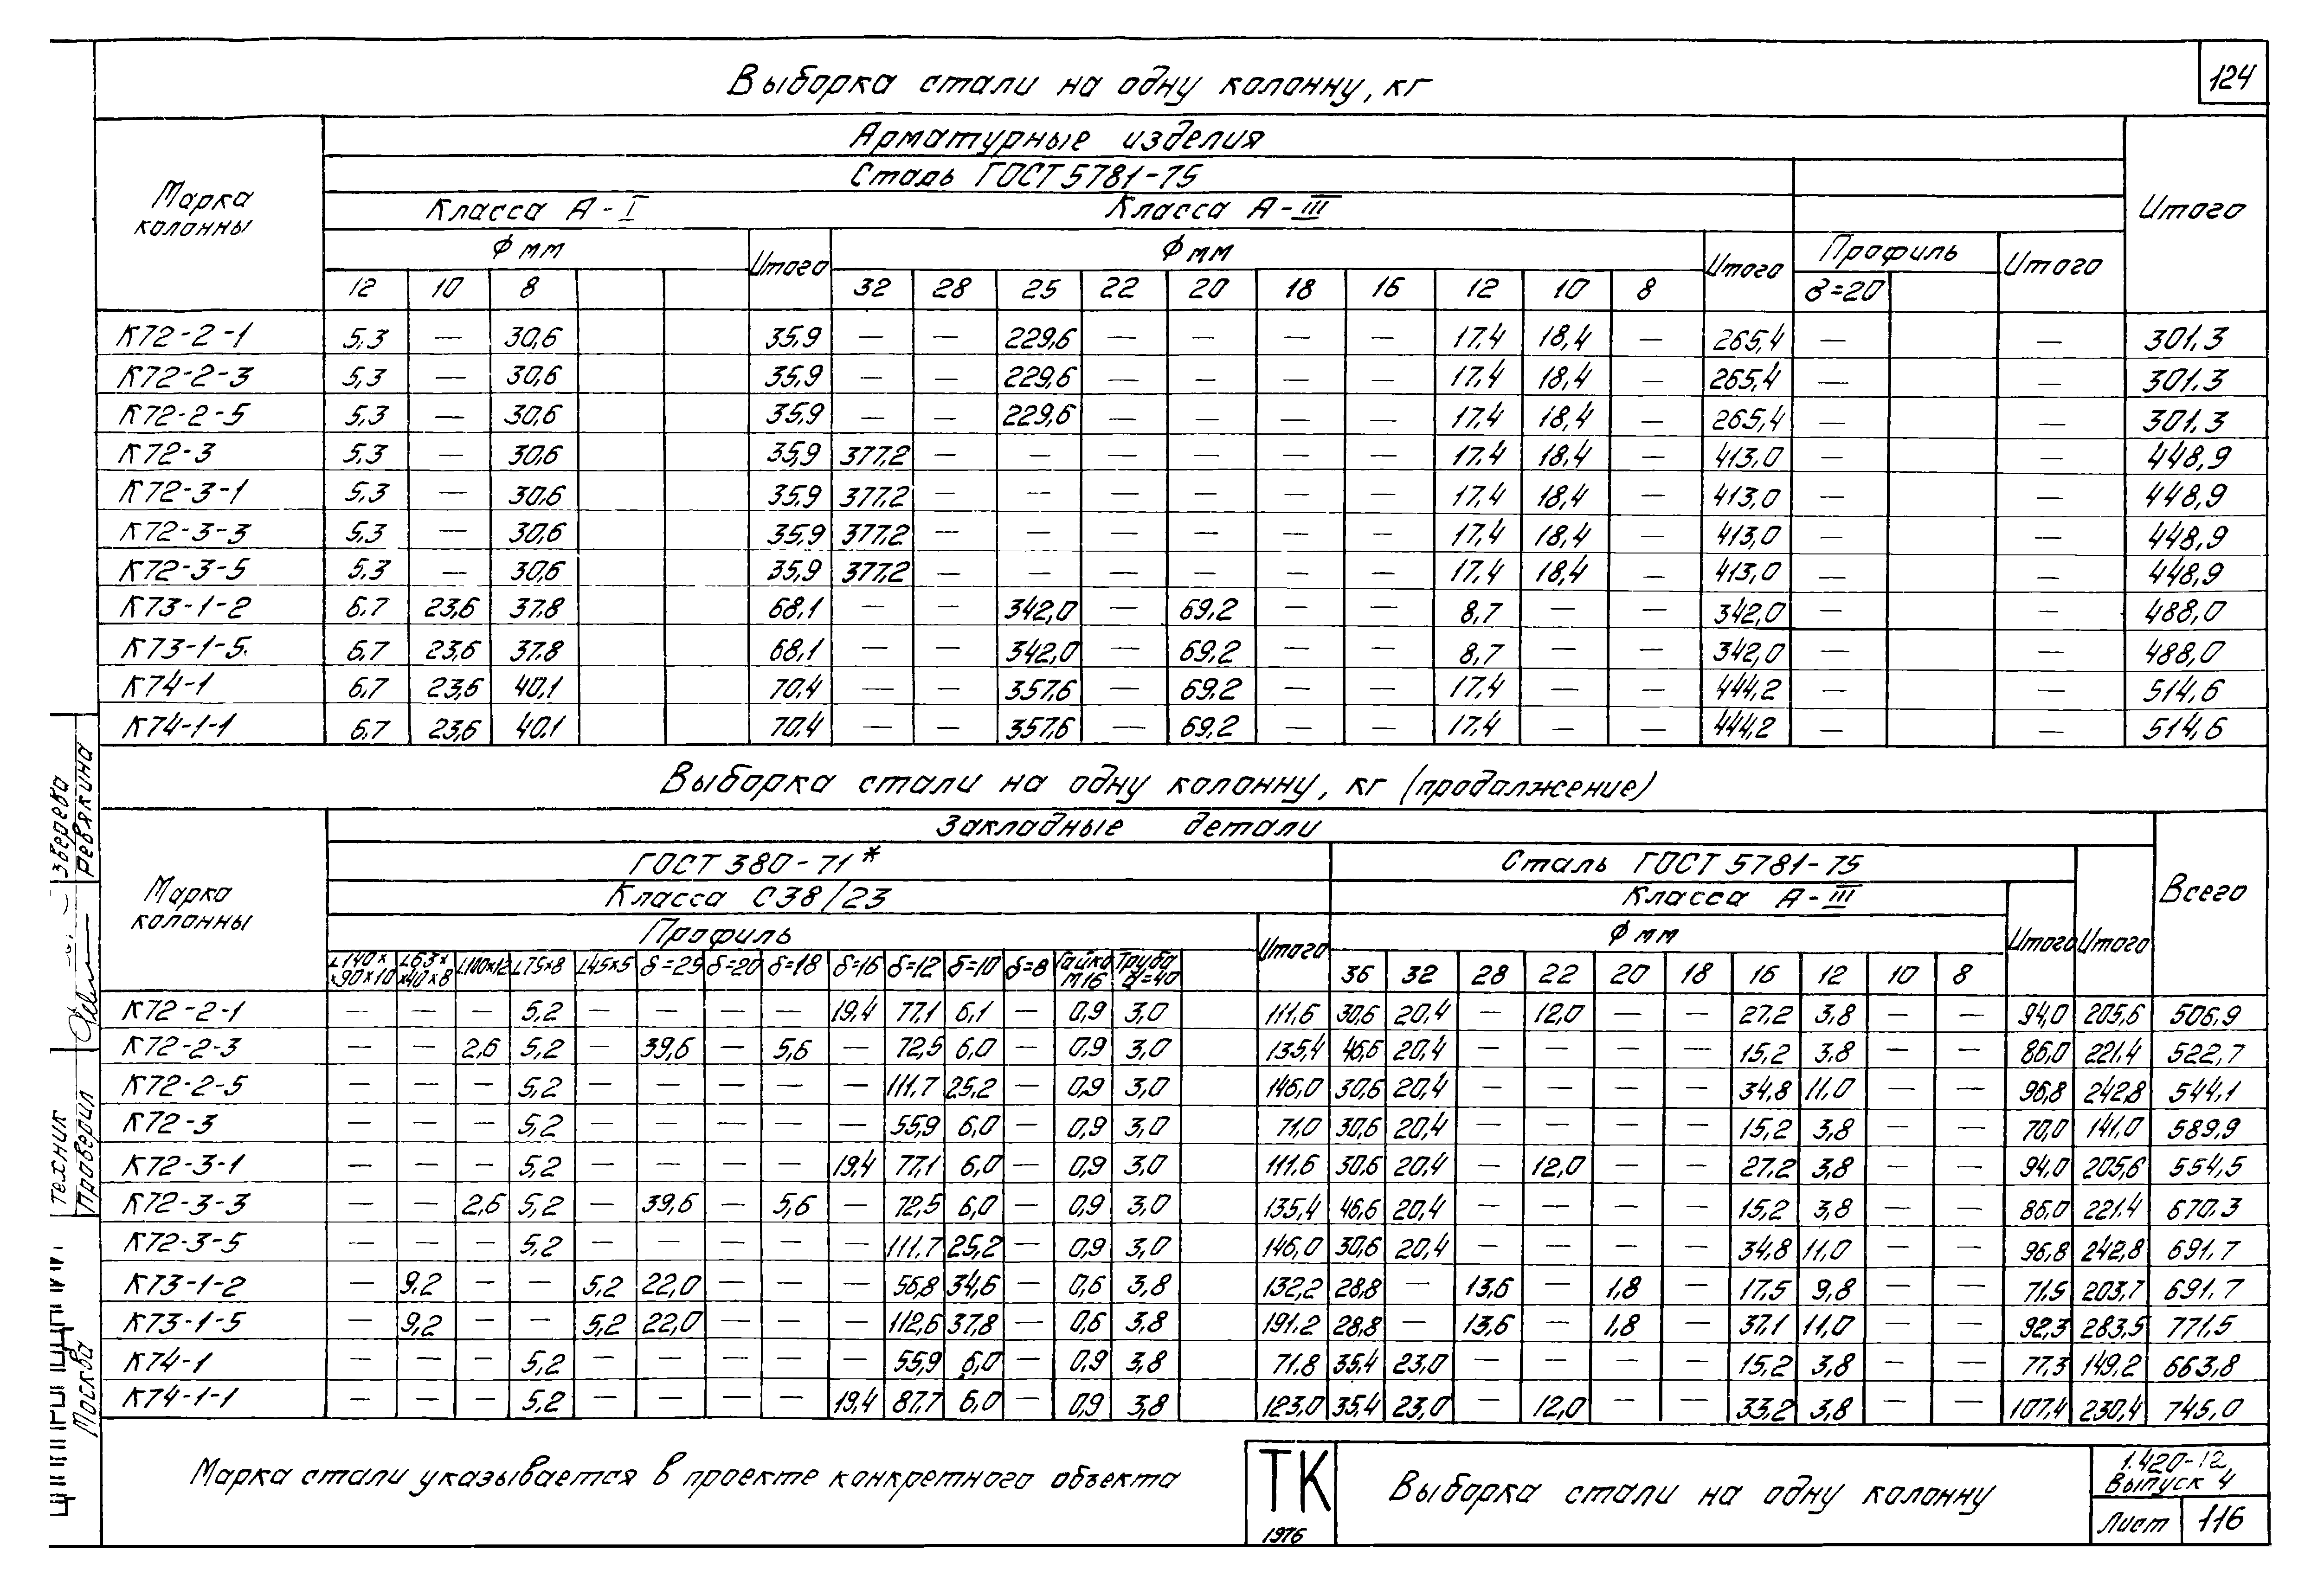 124
Выборка стали на одну колонну, кг
Марка колонны
Арматурные изделия
Итого
Сталь ГОСТ 5781-75
Класса А-I Класса А-III
Ф мм Итого Ф мм Итого Профиль Итого
12 10 8 32 28 25 22 20 18 16 12 10 8 δ=20
К72-2-1 5,3 — 30,6 35,9 — — 229,6 — — — — 17,4 18,4 — 265,4 — — 301,3
К72-2-3 5,3 — 30,6 35,9 — — 229,6 — — — — 17,4 18,4 — 265,4 — — 301,3
К72-2-5 5,3 — 30,6 35,9 — — 229,6 — — — — 17,4 18,4 — 265,4 — — 301,3
К72-3 5,3 — 30,6 35,9 377,2 — — — — — — 17,4 18,4 — 413,0 — — 448,9
К72-3-1 5,3 — 30,6 35,9 377,2 — — — — — — 17,4 18,4 — 413,0 — — 448,9
К72-3-3 5,3 — 30,6 35,9 377,2 — — — — — — 17,4 18,4 — 413,0 — — 448,9
К72-3-5 5,3 — 30,6 35,9 377,2 — — — — — — 17,4 18,4 — 413,0 — — 448,9
К73-1-2 6,7 23,6 37,8 68,1 — — 342,0 — 69,2 — — 8,7 — — 342,0 — — 488,0
К73-1-5 6,7 23,6 37,8 68,1 — — 342,0 — 69,2 — — 8,7 — — 342,0 — — 488,0
К74-1 6,7 23,6 40,1 70,4 — — 357,6 — 69,2 — — 17,4 — — 444,2 — — 514,6
К74-1-1 6,7 23,6 40,1 70,4 — — 357,6 — 69,2 — — 17,4 — — 444,2 — — 514,6
Выборка стали на одну колонну, кг (продолжение)
Марка колонны
Закладные детали
Всего
ГОСТ 380-71* Сталь ГОСТ 5781-75
Класса С38/23 Класса А-III
Профиль Итого Ф мм Итого Итого
L140××90×10 L63××40×8 L100×12 L75×8 L45×5 δ=25 δ=20 δ=18 δ=16 δ=12 δ=10 δ=8 Гайка М16 Труба d=40 36 32 28 22 20 18 16 12 10 8
К72-2-1 — — — 5,2 — — — — 19,4 77,1 6,1 — 0,9 3,0 111,6 30,6 20,4 — 12,0 — — 27,2 3,8 — — 94,0 205,6 506,9
К72-2-3 — — 2,6 5,2 — 39,6 — 5,6 — 72,5 6,0 — 0,9 3,0 135,4 46,6 20,4 — — — — 15,2 3,8 — — 86,0 221,4 522,7
К72-2-5 — — — 5,2 — — — — — 111,7 25,2 — 0,9 3,0 146,0 30,6 20,4 — — — — 34,8 11,0 — — 96,8 242,8 544,1
К72-3 — — — 5,2 — — — — — 55,9 6,0 — 0,9 3,0 71,0 30,6 20,4 — — — — 15,2 3,8 — — 70,0 141,0 589,9
К72-3-1 — — — 5,2 — — — — 19,4 77,1 6,0 — 0,9 3,0 111,6 30,6 20,4 — 12,0 — — 27,2 3,8 — — 94,0 205,6 554,5
К72-3-3 — — 2,6 5,2 — 39,6 — 5,6 — 72,5 6,0 — 0,9 3,0 135,4 46,6 20,4 — — — — 15,2 3,8 — — 86,0 221,4 670,3
К72-3-5 — — — 5,2 — — — — — 111,7 25,2 — 0,9 3,0 146,0 30,6 20,4 — — — — 34,8 11,0 — — 96,8 242,8 691,7
К73-1-2 — 9,2 — — 5,2 22,0 — — — 56,8 34,6 — 0,6 3,8 132,2 28,8 — 13,6 — 1,8 — 17,5 9,8 — — 71,5 203,7 691,7
К73-1-5 — 9,2 — — 5,2 22,0 — — — 112,6 37,8 — 0,6 3,8 191,2 28,8 — 13,6 — 1,8 — 37,1 11,0 — — 92,3 283,5 771,5
К74-1 — — — 5,2 — — — — — 55,9 6,0 — 0,9 3,8 71,8 35,4 23,0 — — — — 15,2 3,8 — — 77,3 149,2 663,8
К74-1-1 — — — 5,2 — — — — 19,4 87,7 6,0 — 0,9 3,8 123,0 35,4 23,0 — 12,0 — — 33,2 3,8 — — 107,4 230,4 745,0
Марка стали указывается в проекте конкретного объекта
ТК
1976
Выборка стали на одну колонну
1.420-12
Выпуск 4
Лист 116
Техник Зверева
Проверил Ревякина
Москва